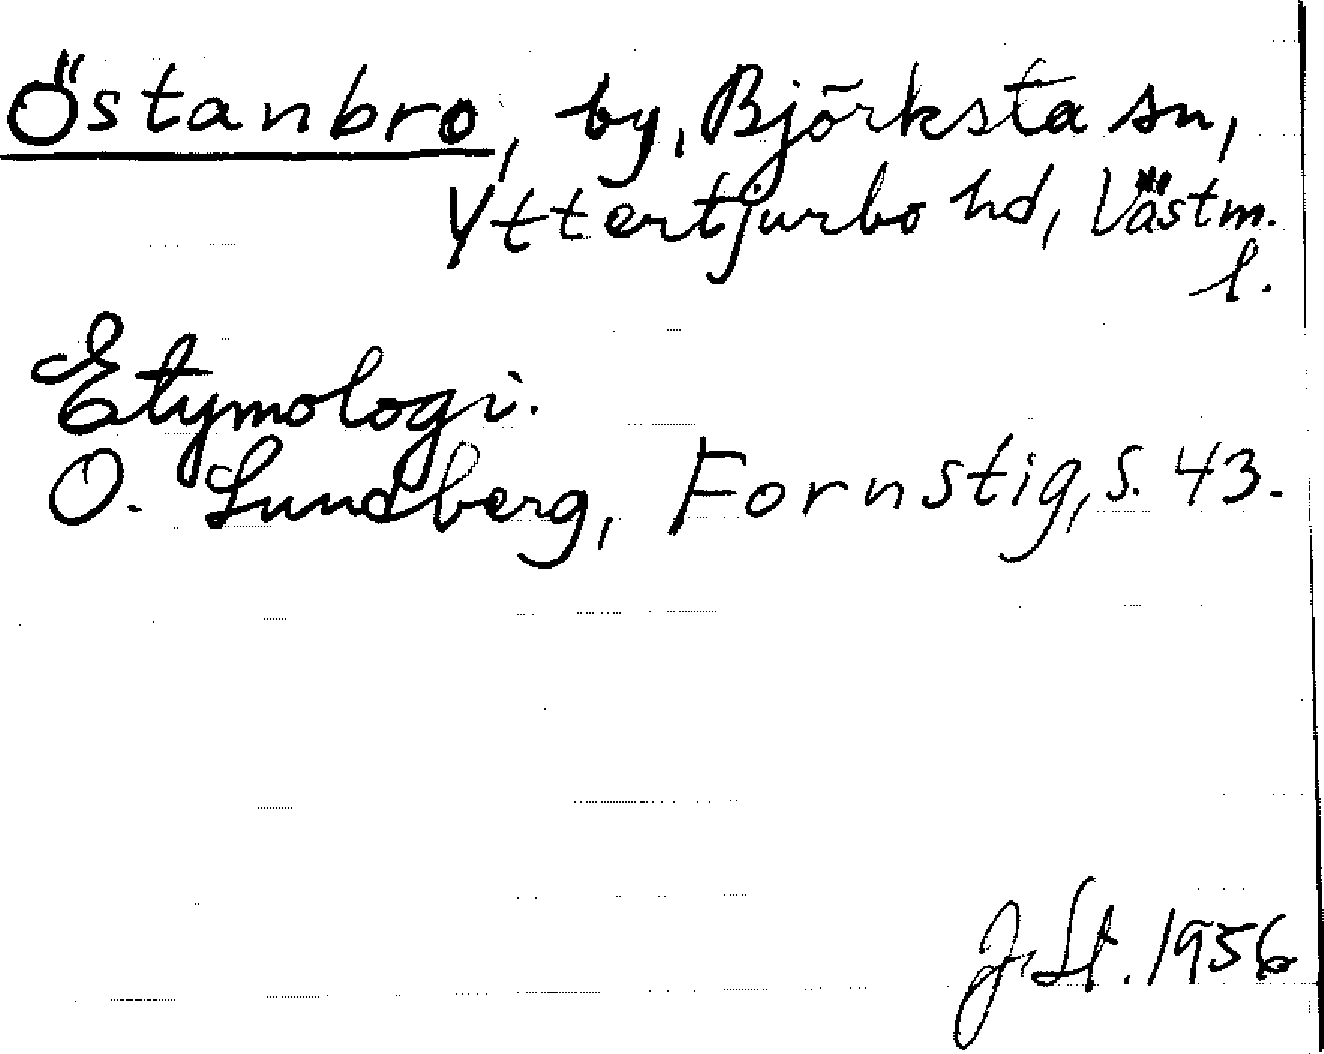 Östanbro, by, Björksta sn,
Yttertjurbo hd, Västm.
l.
Etymologi.
O. Lundberg, Fornstig, s. 43.
J. St. 1956